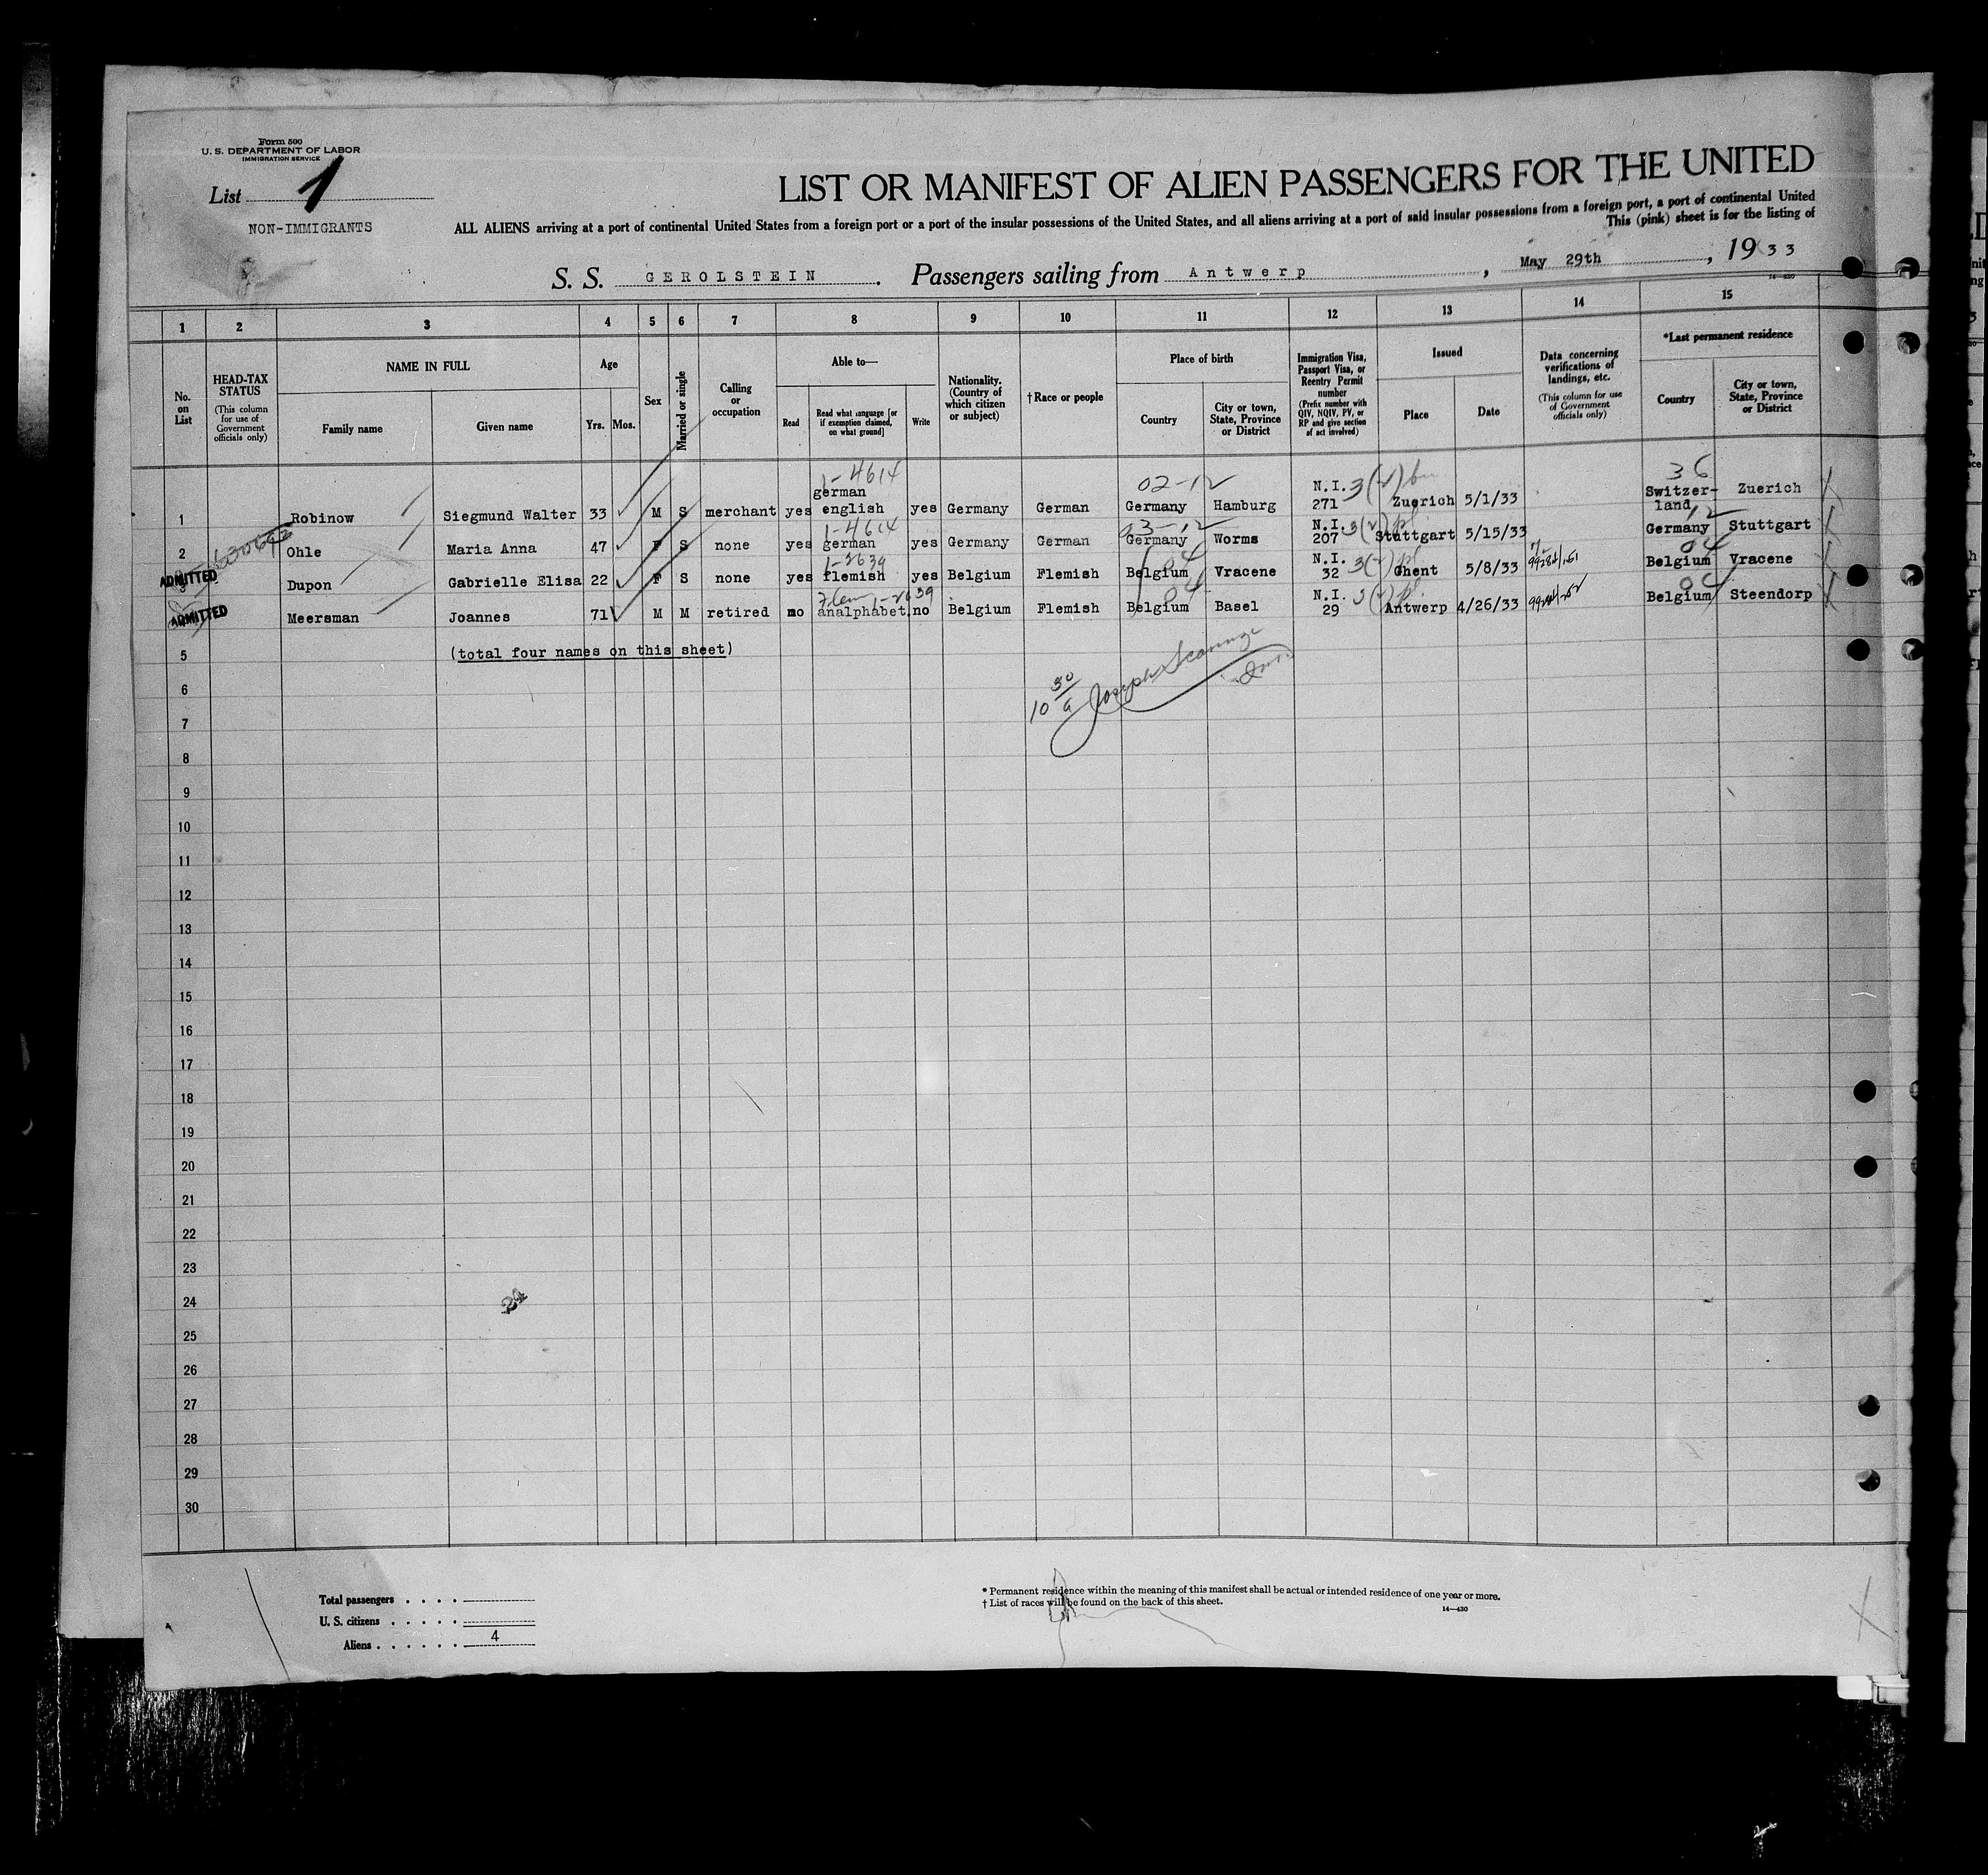 Form 500
U. S. DEPARTMENT OF LABOR
IMMIGRATION SERVICE
List 1
NON-IMMIGRANTS
LIST OR MANIFEST OF ALIEN PASSENGERS FOR THE UNITED
ALL ALIENS arriving at a port of continental United States from a foreign port or a port of the insular possessions of the United States, and all aliens arriving at a port of said insular possessions from a foreign port, a port of continental United
This (pink) sheet is for the listing of
S. S. GEROLSTEIN. Passengers sailing from Antwerp, May 29th, 1933
14-430
1 2 3 4 5 6 7 8 9 10 11 12 13 14 15
No. on List
HEAD-TAX STATUS
(This column for use of Government officials only)
NAME IN FULL
Family name Given name
Age
Yrs. Mos.
Sex
Married or single
Calling or occupation
Able to—
Read
Read what language [or if exemption claimed, on what ground]
Write
Nationality. (Country of which citizen or subject)
†Race or people
Place of birth
Country
City or town, State, Province or District
Immigration Visa, Passport Visa, or Reentry Permit number
(Prefix number with QIV, NQIV, PV, or RP and give section of act involved)
Issued
Place Date
Data concerning verifications of landings, etc.
(This column for use of Government officials only)
*Last permanent residence
Country
City or town, State, Province or District
1-4614 02-12 36
1 Robinow Siegmund Walter 33 M S merchant yes german english yes Germany German Germany Hamburg N.I. 271 3(2) Zuerich 5/1/33 Switzerland Zuerich
1-4614 03-12 12
2 Ohle Maria Anna 47 F S none yes german yes Germany German Germany Worms N.I. 207 3(2) Stuttgart 5/15/33 Germany Stuttgart
1-2639 04 04
ADMITTED 3 Dupon Gabrielle Elisa 22 F S none yes flemish yes Belgium Flemish Belgium Vracene N.I. 32 3(2) Ghent 5/8/33 Belgium Vracene
Flem 1-2639 04 04
ADMITTED Meersman Joannes 71 M M retired no analphabet. no Belgium Flemish Belgium Basel N.I. 29 3(2) Antwerp 4/26/33 Belgium Steendorp
5 (total four names on this sheet)
10 30/a Joseph
6
7
8
9
10
11
12
13
14
15
16
17
18
19
20
21
22
23
24
24
25
26
27
28
29
30
Total passengers
U. S. citizens
Aliens 4
* Permanent residence within the meaning of this manifest shall be actual or intended residence of one year or more.
† List of races will be found on the back of this sheet.
14-430